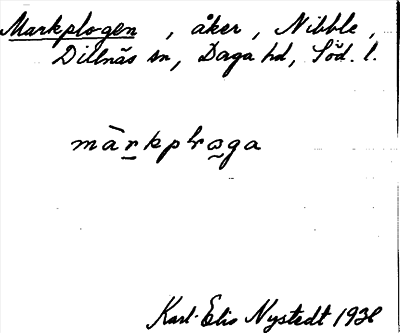 Markplogen, åker, Nibble,
Dillnäs sn, Daga hd, Söd. l.
màrkplωga
Karl-Elis Nystedt 1938